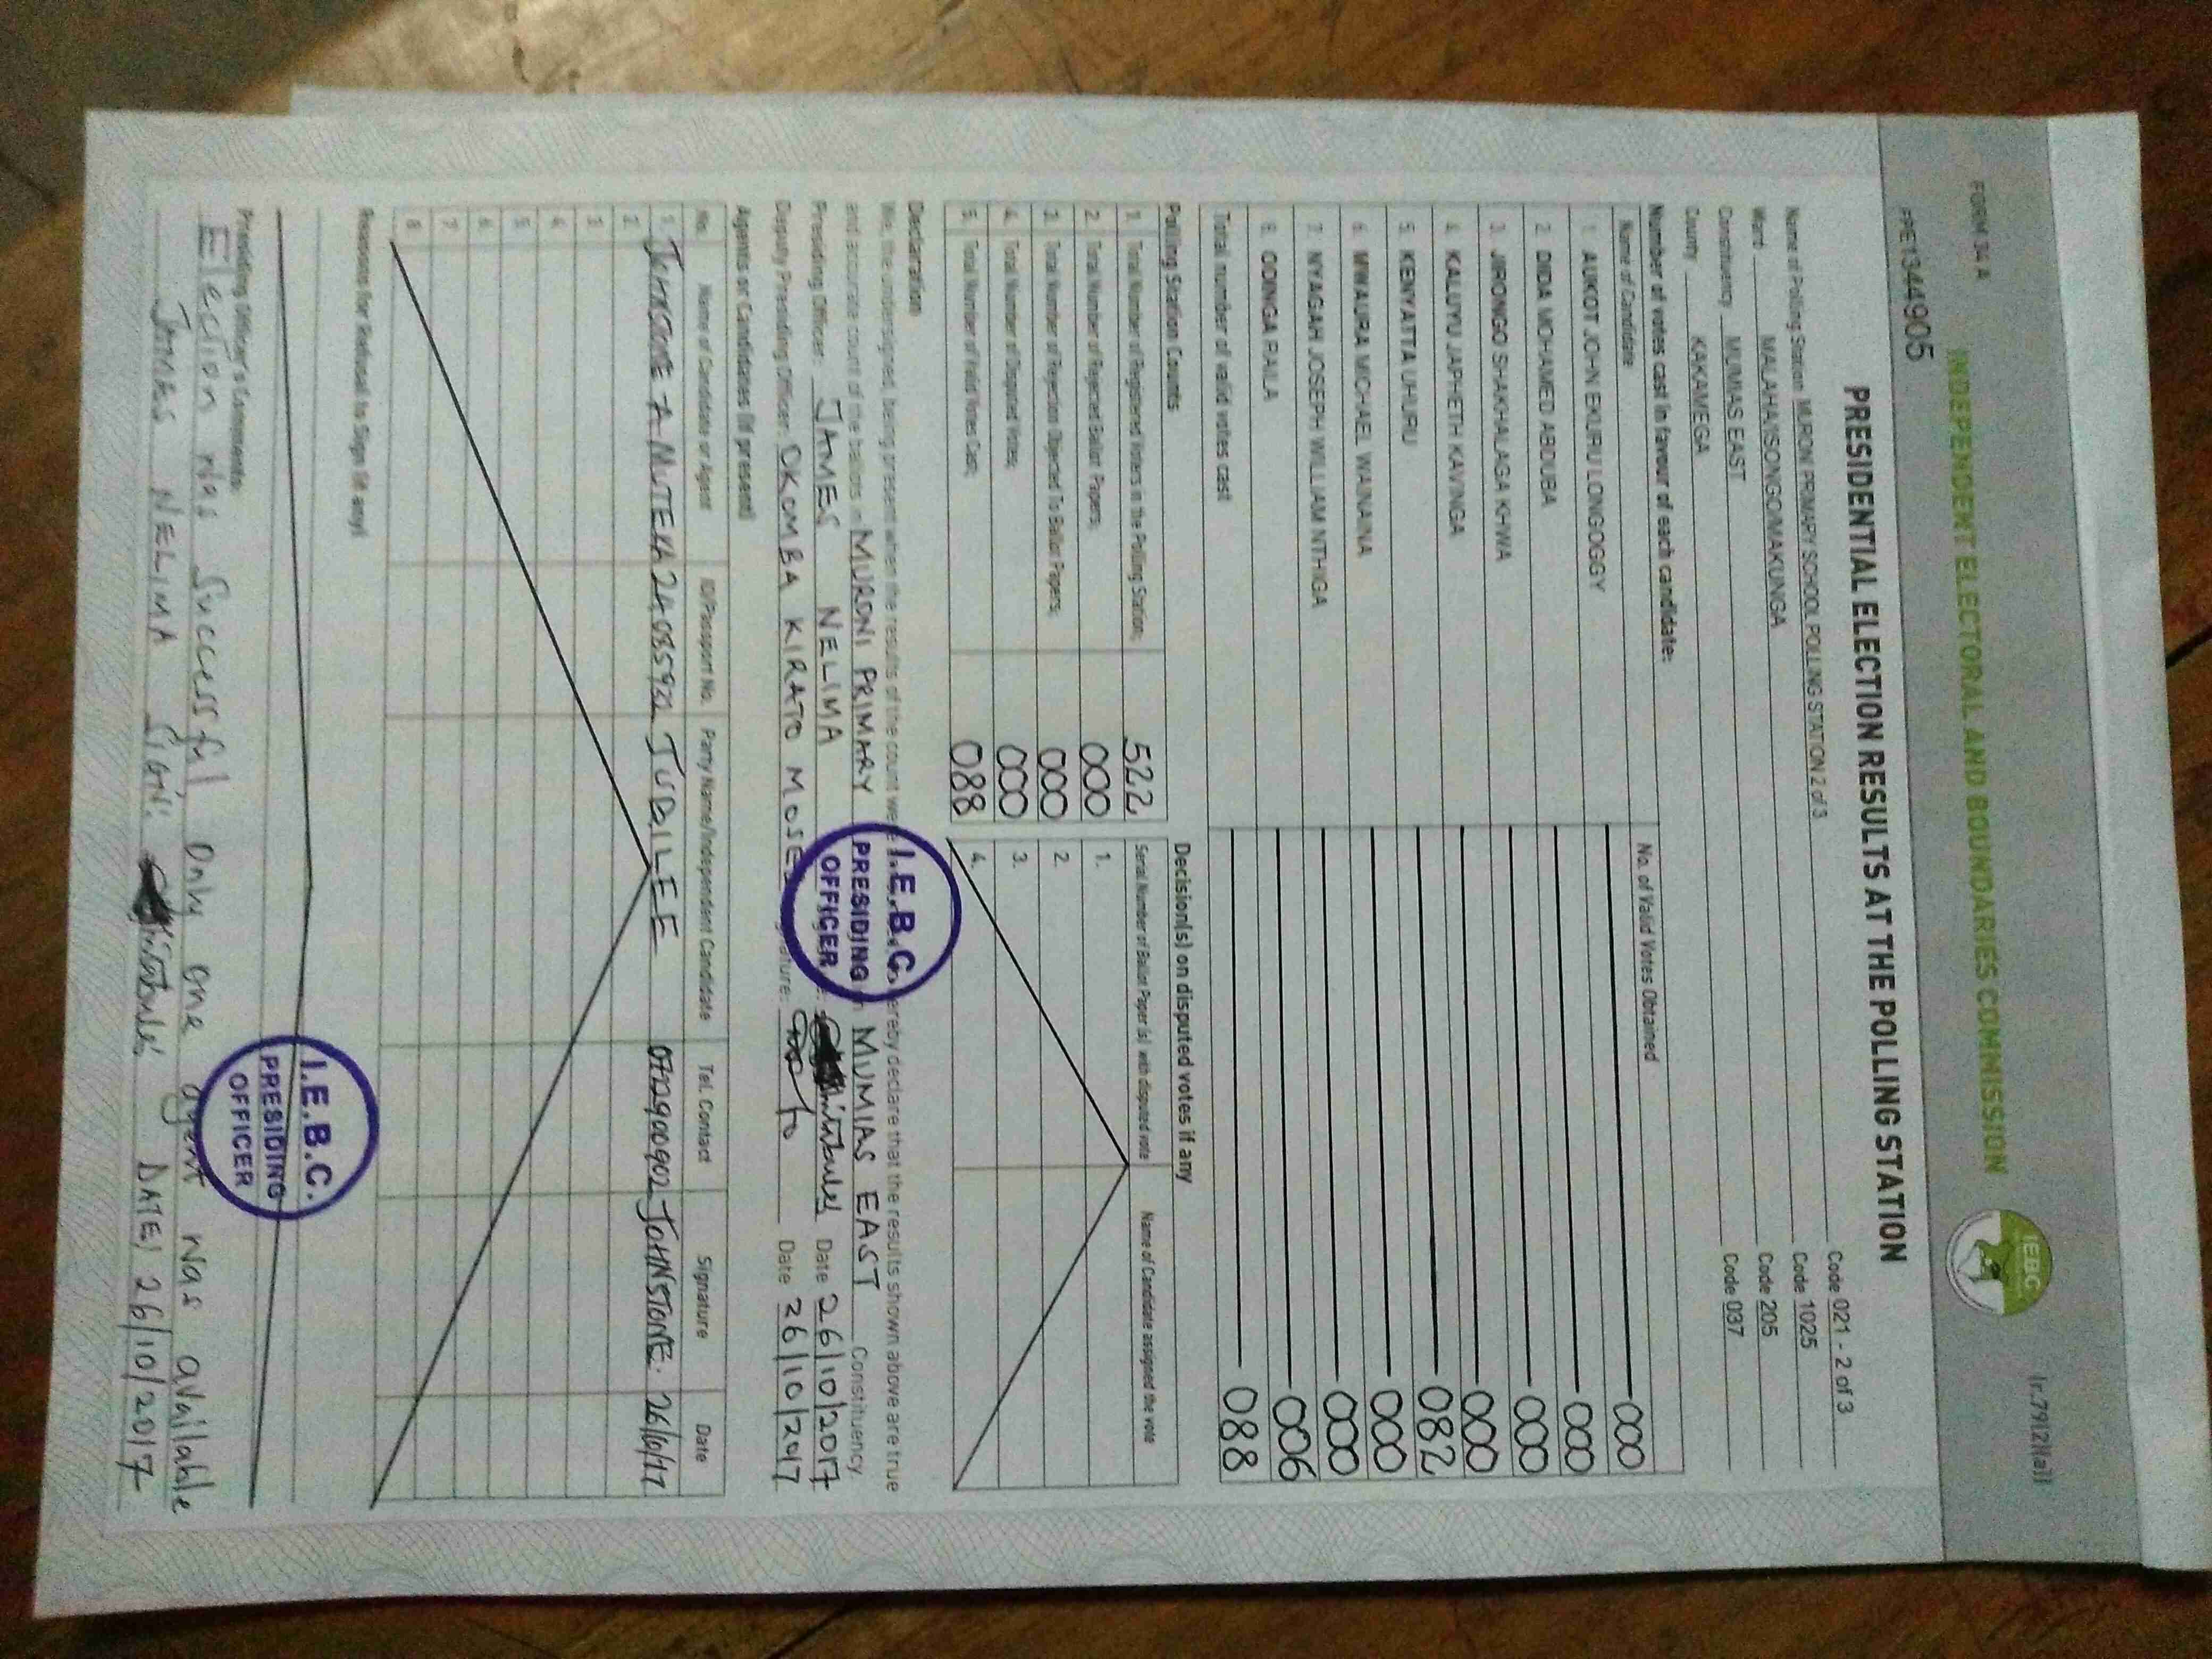 (r.79)(2)(a)
FORM 34 A
INDEPENDENT ELECTORAL AND BOUNDARIES COMMISSION
IEBC
PPE1344905
PRESIDENTIAL ELECTION RESULTS AT THE POLLING STATION
Name of Polling Station MURONI PRIMARY SCHOOL POLLING STATION 2 of 3 Code 021 - 2 of 3
Ward MALAHA/ISONGO/MAKUNGA Code 1025
Constituency MUMIAS EAST Code 205
County KAKAMEGA Code 037
Number of votes cast in favour of each candidate:
Name of Candidate No. of Valid Votes Obtained
1. AUKOT JOHN EKURU LONGOGGY 000
2. DIDA MOHAMED ABDUBA 000
3. JIRONGO SHAKHALAGA KHWA 000
4. KALUYU JAPHETH KAVINGA 000
5. KENYATTA UHURU 082
6. MWAURA MICHAEL WAINAINA 000
7. NYAGAH JOSEPH WILLIAM NTHIGA 000
8. ODINGA RAILA 006
Total number of valid votes cast 088
Polling Station Counts
1. Total Number of Registered Voters in the Polling Station; 522
2. Total Number of Rejected Ballot Papers; 000
3. Total Number of Rejection Objected To Ballot Papers; 000
4. Total Number of Disputed Votes; 000
5. Total Number of Valid Votes Cast; 088
Decision(s) on disputed votes if any
Serial Number of Ballot Paper (s) with disputed vote Name of Candidate assigned the vote
1.
2.
3.
4.
Declaration
We, the undersigned, being present when the results of the count were hereby declare that the results shown above are true
and accurate count of the ballots in MURONI PRIMARY in MUMIAS EAST Constituency
Presiding Officer: JAMES NELIMA Date 26/10/2017
Deputy Presiding Officer: OKOMBA KIRATO MOSES Signature: Date 26/10/2017
I.E.B.C.
PRESIDING
OFFICER
Agents or Candidates (if present)
No. Name of Candidate or Agent ID/Passport No. Party Name/Independent Candidate Tel. Contact Signature Date
1 JOHNSTONE A MUTEKA 24035922 JUBILEE 0729900902 JOHNSTONE. 26/10/17
2
3
4
5
6
7
8
Reasons for Refusal to Sign (if any)
I.E.B.C.
PRESIDING
OFFICER
Presiding Officer's Comments:
Election was successful, Only one agent was available
JAMES NELIMA SIGN: DATE: 26/10/2017